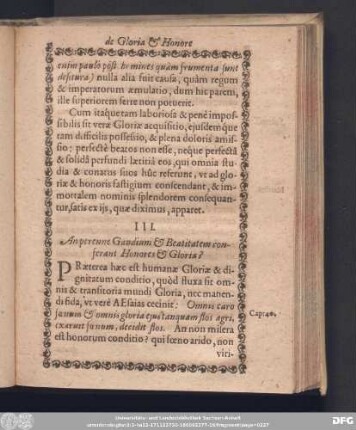 de Gloria & Honore
enim paulo pòst homines quàm frumenta sunt
desitura) nulla alia fuit causa, quàm regum
& imperatorum æmulatio, dum hic parem,
ille superiorem ferre non potuerit.
Cum itaq; tam laboriosa & penè impos-
sibilis sit veræ Gloriæ acquisitio, ejusdemque
tam difficilis possessio, & plena doloris amis-
sio: perfectè beatos non esse, neque perfectâ
& solidâ perfundi lætitiâ eos, qui omnia stu-
dia & conatus suos hûc referunt, vt ad glo-
riæ & honoris fastigium conscendant, & im-
mortalem nominis splendorem consequan-
tur, satis ex ijs, quæ diximus, apparet.
III.
An perenne Gaudium & Beatitatem con-
ferant Honores & Gloria?
PRæterea hæc est humanæ Gloriæ & di-
gnitatum conditio, quòd fluxa sit om-
nis & transitoria mundi Gloria, nec manen-
di fida, vt verè AEsaias cecinit: Omnis caro
fænum & omnis gloria ejus tanquam flos agri,
exaruit fænum, decidit flos. An non misera
est honorum conditio? qui fœno arido, non
viri-
Cap: 40.
Universitäts- und Landesbibliothek Sachsen-Anhalt
DFG